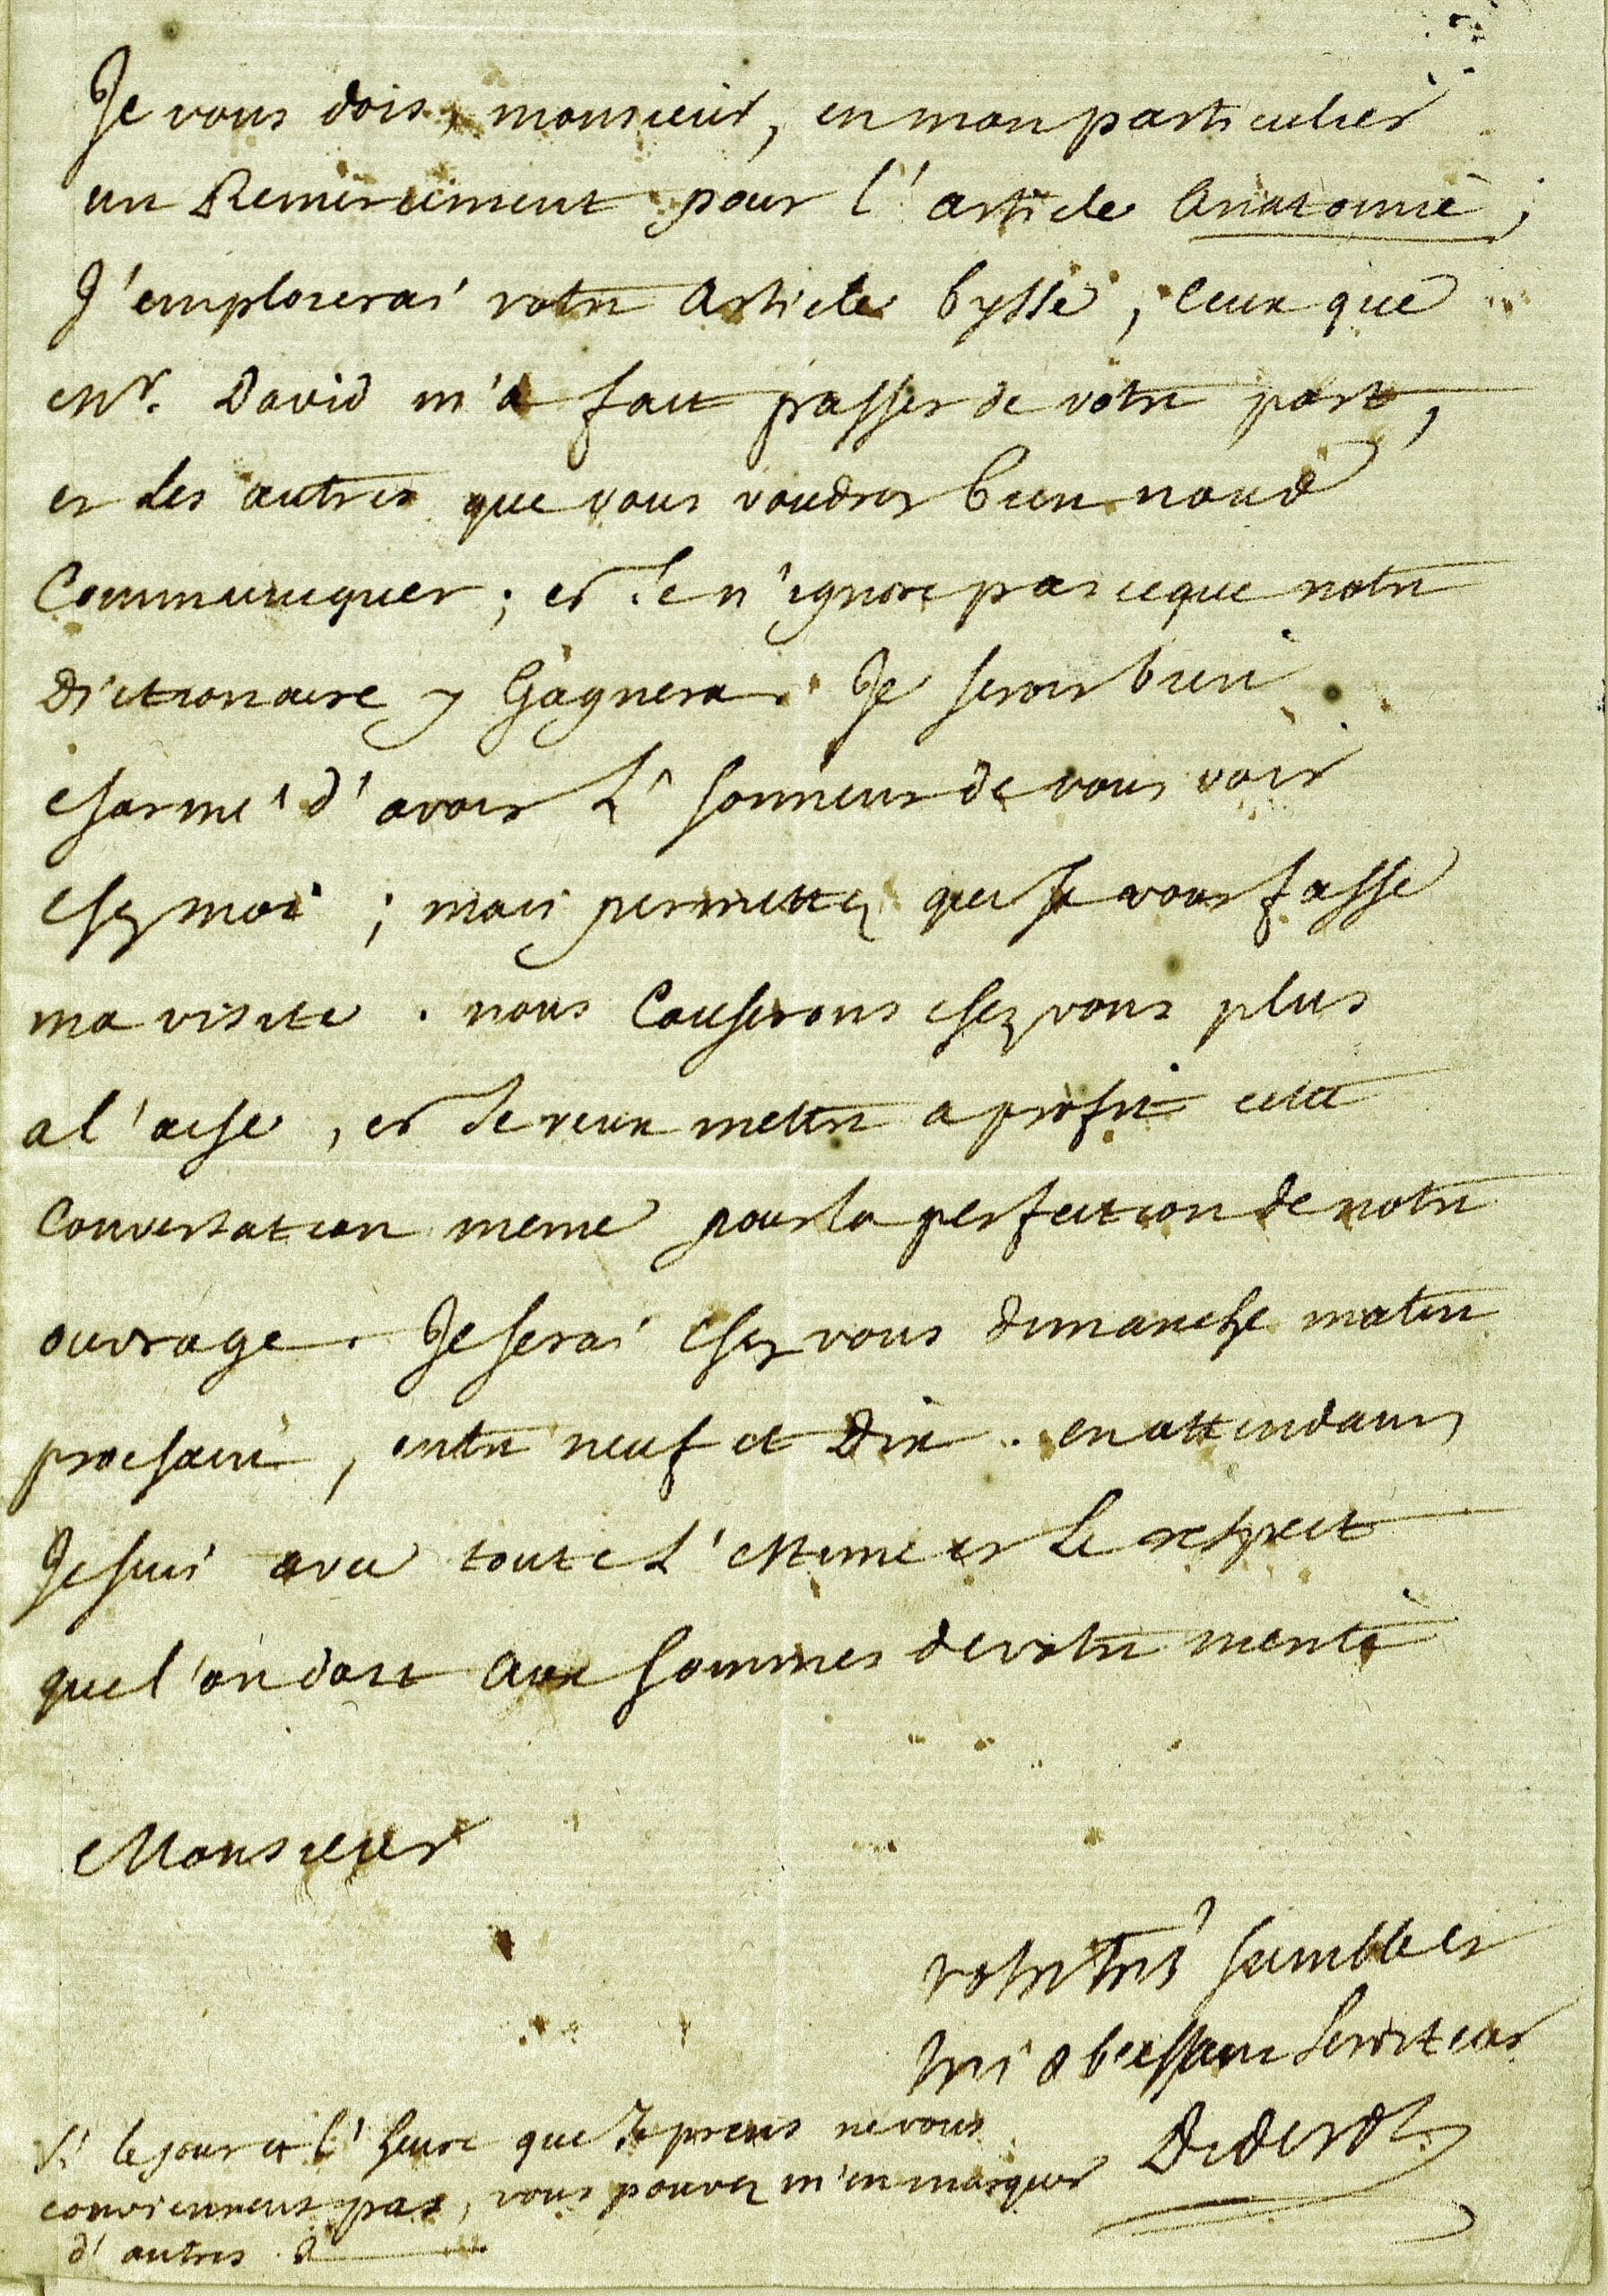 Je vous dois, monsieur, en mon particulier
un Remerciement pour l'article Anatomie;
J'emploierai votre Article bysse, ceux que
Mr. David m'a fait passer de votre part,
et les autres que vous voudrez bien nous
Communiquer; et Je n'ignore pas ce que notre
Dictionaire y Gagnera. Je serois bien
charmé d'avoir L'honneur de vous voir
chez moi; mais permettez que Je vous fasse
ma visite. nous Causerons chez vous plus
a l'aise, et Je veux mettre a profit cette
Conversation meme pour la perfection de notre
ouvrage. Je serai chez vous dimanche matin
prochain, entre neuf et Dix. en attendant
Je suis avec toute L'estime et Le respect
que l'on doit aux hommes de votre merite
Monsieur
votre tres humble et
tres obeissant Serviteur
Diderot
Si le jour et l'heure que Je prens ne vous
conviennent pas, vous pouvez m'en marquer
d'autres.